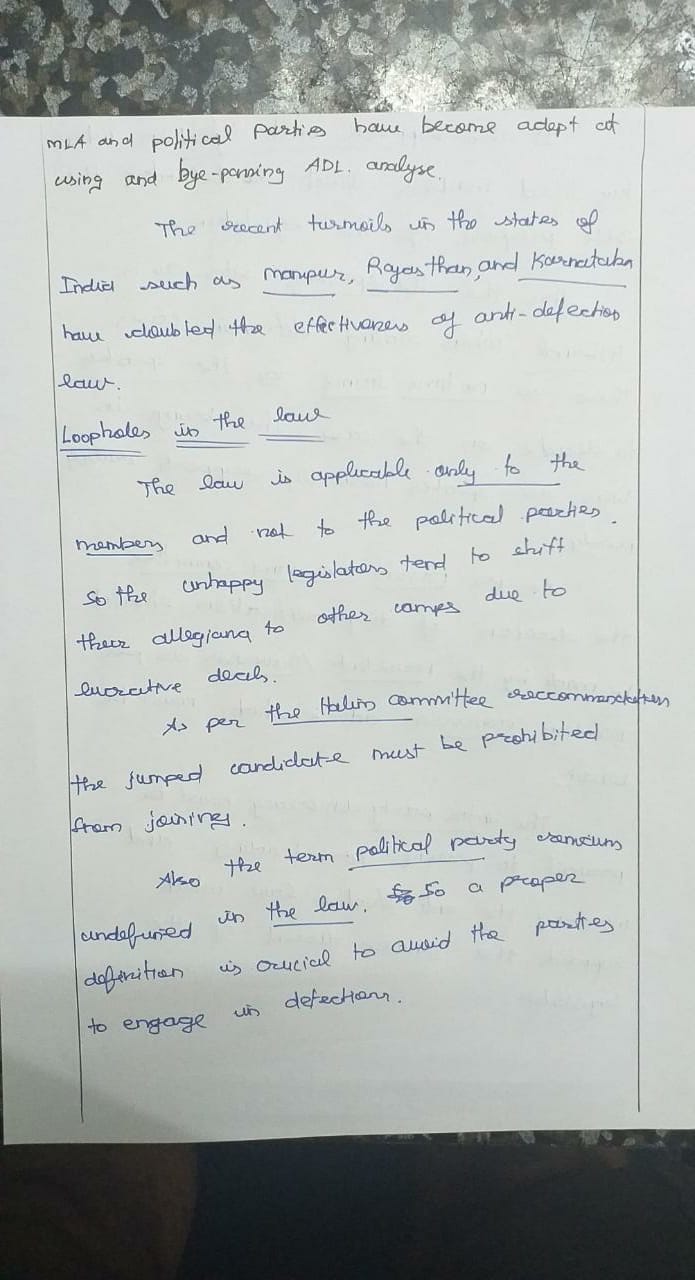 MLA and political parties have become adept at
using and bye-passing ADL. analyse.
The recent turmoils in the states of
India such as manipur, Rajasthan, and Karnataka
have doubted the effectiveness of anti-defection
law.
Loopholes in the law
The law is applicable only to the
members and not to the political parties.
So the unhappy legislators tend to shift
their allegiance to other camps due to
lucrative deals.
As per the Halim committee reccommendation
the jumped candidate must be prohibited
from joining.
Also the term political party remains
undefined in the law. So a proper
definition is crucial to avoid the parties
to engage in defections.